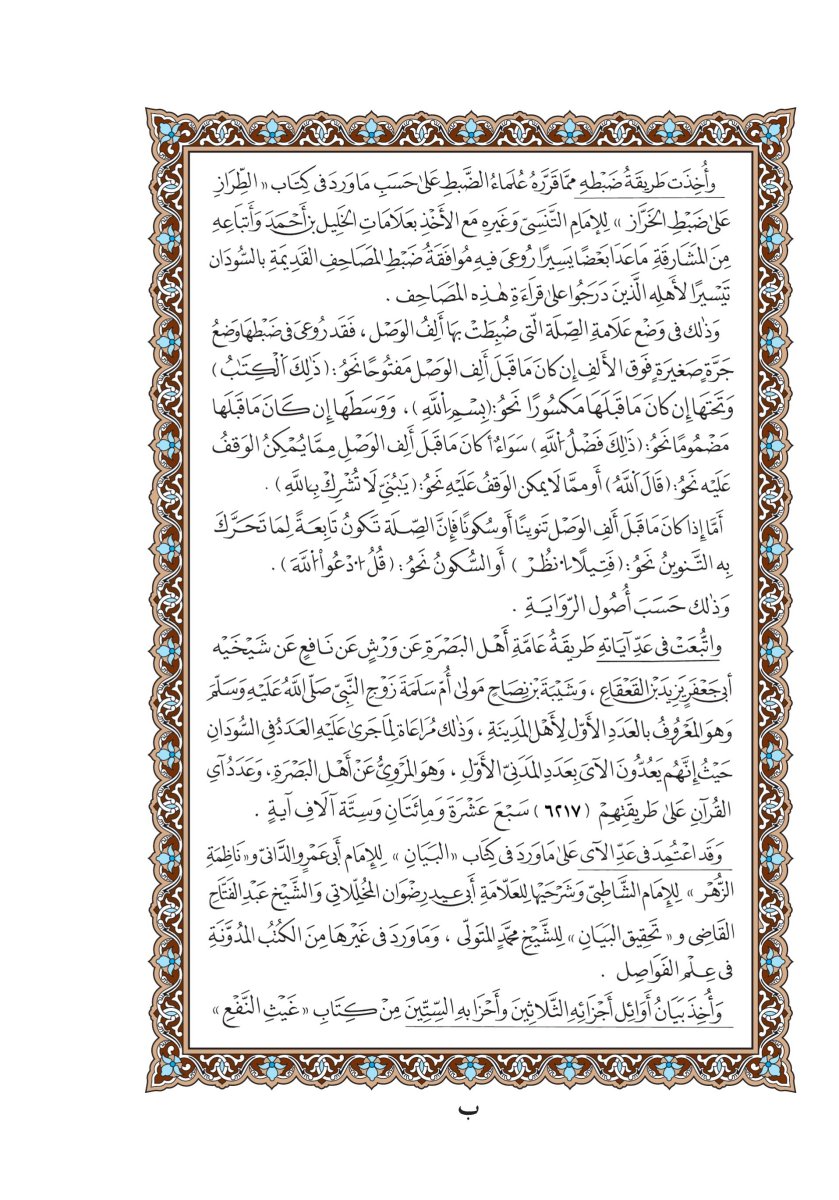 وَأُخِذَت طَرِيقَةُ ضَبْطِهِ مِمَّا قَرَّرَهُ عُلَمَاءُ الضَّبْطِ عَلَىٰ حَسَبِ مَا وَرَدَ فِى كِتَاب « الطِّرَازِ
عَلَىٰ ضَبْطِ الخَرَّاز » لِلإِمَامِ التَّنَسِىّ وَغَيرِهِ مَع الأَخْذِ بعَلَامَاتِ الخَلِيل بْن أَحْمَدَ وَأَتبَاعِهِ
مِنَ المَشَارِقَةِ مَا عَدَا بَعْضًا يَسِيرًا رُوعِىَ فِيهِ مُوَافَقَةُ ضَبْطِ المَصَاحِفِ القَدِيمَةِ بالسُّودَان
تَيْسِيرًا لأَهلِهِ الَّذينَ دَرَجُوا عَلىٰ قِرَاءَةِ هٰذِهِ المَصَاحِفِ .
وَذٰلكَ فِى وَضْعِ عَلَامَةِ الصِّلَة الَّتِى ضُبِطَتْ بهَا أَلِفُ الوَصْل ، فَقَد رُوعِىَ فى ضَبْطِهَا وَضعُ
جَرَّةٍ صَغِيرَةٍ فَوق الأَلفِ إِن كانَ مَا قَبلَ أَلِفِ الوَصْل مَفتُوحًا نَحوُ : (ذَٰلِكَ اَلْكِتَٰبُ)
وَتَحتَهَا إِن كانَ مَا قَبلَهَا مَكسُورًا نَحوُ : (بِسْمِ اِللَّهِ) ، وَوَسَطَهَا إِن كَانَ مَا قَبلَهَا
مَضْمُومًا نَحوُ : (ذَٰلِكَ فَضْلُ اُللَّهِ) سَوَاءٌ أَكانَ مَا قَبلَ أَلِف الوَصْلِ مِمَّا يُمْكِنُ الوَقفُ
عَلَيْه نَحوُ : (قَالَ اَللَّهُ) أَو ممَّا لَا يمكن الوَقفُ عَلَيْهِ نَحوُ : (يَٰبُنَىِّ لَا تُشْرِكْ بِاللَّهِ) .
أَمَّا إِذا كانَ مَا قَبلَ أَلفِ الوَصْل تَنوينًا أَو سُكُونًا فَإِنَّ الصِّلَة تَكونُ تَابِعَةً لِمَا تَحَرَّكَ
بِهِ التَّنوينُ نَحوُ : (فَتِيلًا اُنظُرْ) أَوِ السُّكُونُ نَحوُ : (قُلُ اُدْعُواْ اُللَّهَ) .
وَذٰلكَ حَسَبَ أُصُول الرِّوَايَةِ .
وَاتُّبعَتْ فِى عَدِّ آيَاتِهِ طَرِيقَةُ عَامَّةِ أَهْلِ البَصْرَةِ عَن وَرْشٍ عَن نَافِعٍ عَن شَيخَيْه
أَبى جَعْفَرٍ يَزِيدَ بْنِ القَعْقَاعِ ، وَشَيْبَةَ بْنِ نِصَاحٍ مَولىٰ أُمِّ سَلَمَةَ زَوْجِ النَّبِىّ صَلَّى اللَّهُ عَلَيْهِ وَسَلَّمَ
وَهوَ المَعْرُوفُ بالعَدَدِ الأَوَّل لِأَهْلِ المَدِينَةِ ، وَذٰلكَ مُرَاعَاة لِمَا جَرىٰ عَلَيْهِ العَدَدُ فِى السُّودَانِ
حَيْثُ إِنَّهُم يَعُدُّونَ الآىَ بِعَدَدِ المَدَنىّ الأَوَّل ، وَهوَ المَرْوِىُّ عَنْ أَهْلِ البَصْرَةِ ، وَعَدَدُ آىِ
القُرْآنِ عَلىٰ طَرِيقَتِهِمْ (٦٢١٧) سَبْعَ عَشْرَةَ وَمِائَتَانِ وَسِتَّة آلَافِ آيَةٍ .
وَقَد اعْتُمِدَ فِى عَدِّ الآىِ عَلَىٰ مَا وَرَدَ فِى كِتَاب « البَيَانِ » لِلإِمَام أَبِى عَمْرٍو الدَّانىّ و« نَاظِمَةِ
الزُّهْر » لِلإِمَام الشَّاطِبىّ وَشَرْحَيْهَا لِلعَلَّامَةِ أَبى عِيد رِضْوَان المُخَلِّلَاتى وَالشَّيْخ عَبْد الفَتَّاح
القَاضِى و « تَحقِيق البَيَانِ » لِلشَّيْخِ مُحَمَّدٍ المُتَوَلّى ، وَمَا وَرَدَ فى غَيْرِهَا مِنَ الكُتُبِ المُدَوَّنَةِ
فى عِلْمِ الفَوَاصِل .
وَأُخِذَ بَيَانُ أَوَائِل أَجْزَائِهِ الثَّلَاثِينَ وَأَحْزَابِهِ السِّتِّينَ مِنْ كِتَابِ « غَيْثِ النَّفْعِ »
ب